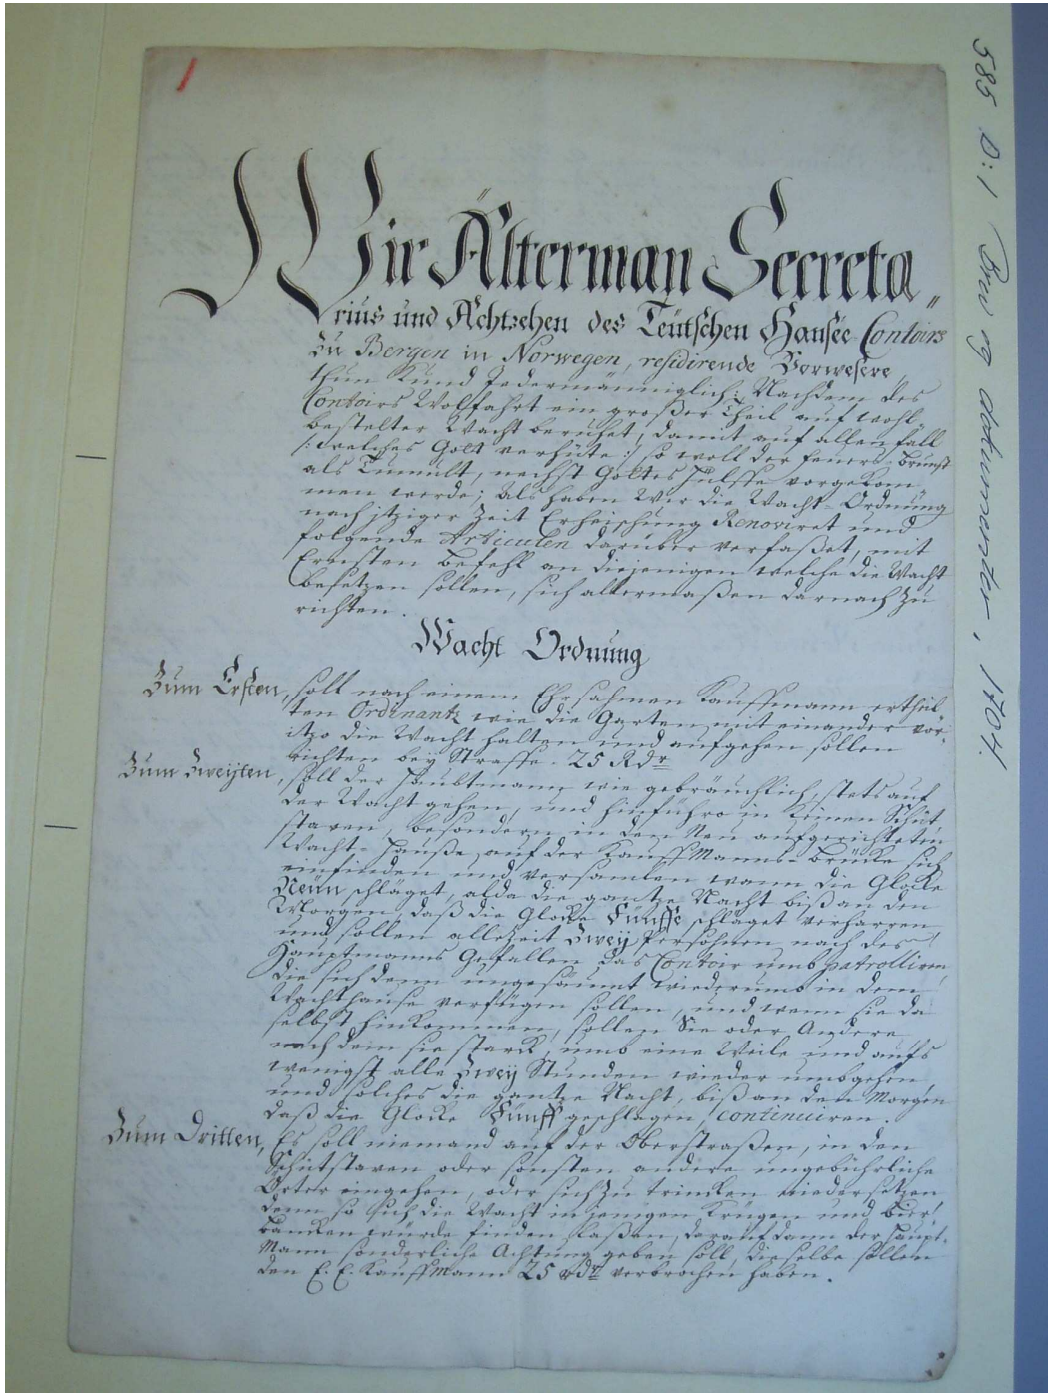 1
Wir Älterman Secreta„
rius und Achtzehen des Teütschen Hansée Contoirs
Zu Bergen in Norwegen, residirende Vorwesere,
thun Kund Jedermänniglich: Nachdem des
Contoirs Wolfahrt ein großer Theil auf wohl
bestelter Wacht beruhet, damit auf allen fall
/:welches Gott verhüte:/ so woll der feuers-Brunst
als Tumult, nechst Gottes Hülffe vorgekom
men werde; Als haben Wir die Wacht-Ordnung
nach itziger Zeit Erheischung Renoviret und
folgende Articulen darüber verfaßet, mit
Ernsten Befehl an diejenigen welche die Wacht
besetzen sollen, sich allermaßen darnach zu
richten.
Wacht Ordnung
Zum Ersten, soll nach einem Ehrsahmen Kauffmann ertheil
ten Ordinantz wie die Garten mit einander
itzo die Wacht halten und aufgehen sollen
richten bey Straffe. 25 Rdr
Zum Zweijten, soll der Haubtmann wie gebräuchlich, stets auf
der Wacht gehen, und hinführo in Keinen Schüt
staven, besondern in den Neu aufgerichteten
Wacht-Hauße, auf der KauffManns-Brücke sich
einfinden und versamlen wann die Glocke
Neün schläget, alda die gantze Nacht biß an den
Morgen, daß die Glocke Fünffe schläget verharren
und sollen allezeit Zweij Persohnen nach des
Hauptmanns Gefallen das Contoir umb patrolliren,
die sich denn ungesäumt wiederumb in dem
Wachthause verfügen sollen, und wenn sie da
selbst hinkommen, sollen Sie oder Andere
nach dem sie starck, umb eine Weile und aufs
wenigst alle Zweij Stunden wieder umbgehen,
und solches die gantze Nacht, biß an den Morgen
daß die Glocke Fünff geschlagen, continuiren.
Zum Dritten, Es soll niemand auf der Oberstraßen, in den
Schütstaven oder sonsten andere ungebührliche
Örter eingehen, oder sich zu trincken niedersetzen
denn so sich die Wacht in jenigen Krügen und Bier
Bancken würde finden laßen, darauf dann der Haupt-
Mann sonderliche Achtung geben soll, dieselbe sollen
den E. E. Kauffmann 25 Rdr verbrochen haben.
585 D:1 Brev og dokumenter, 1704